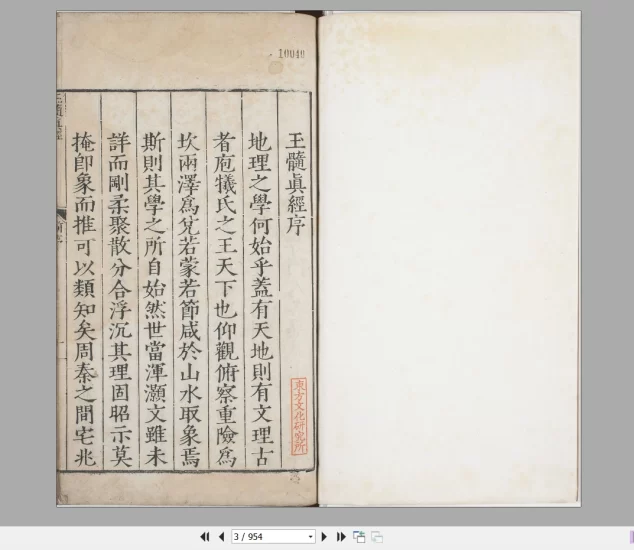 10040
玉髓眞經序
地理之學何始乎葢有天地則有文理古
者庖犧氏之王天下也仰觀俯察重險爲
坎兩澤爲兌若蒙若節咸於山水取象焉
斯則其學之所自始然世當渾灝文雖未
詳而剛柔聚散分合浮沉其理固昭示莫
掩卽象而推可以類知矣周秦之間宅兆
東方文化研究所
3 / 954